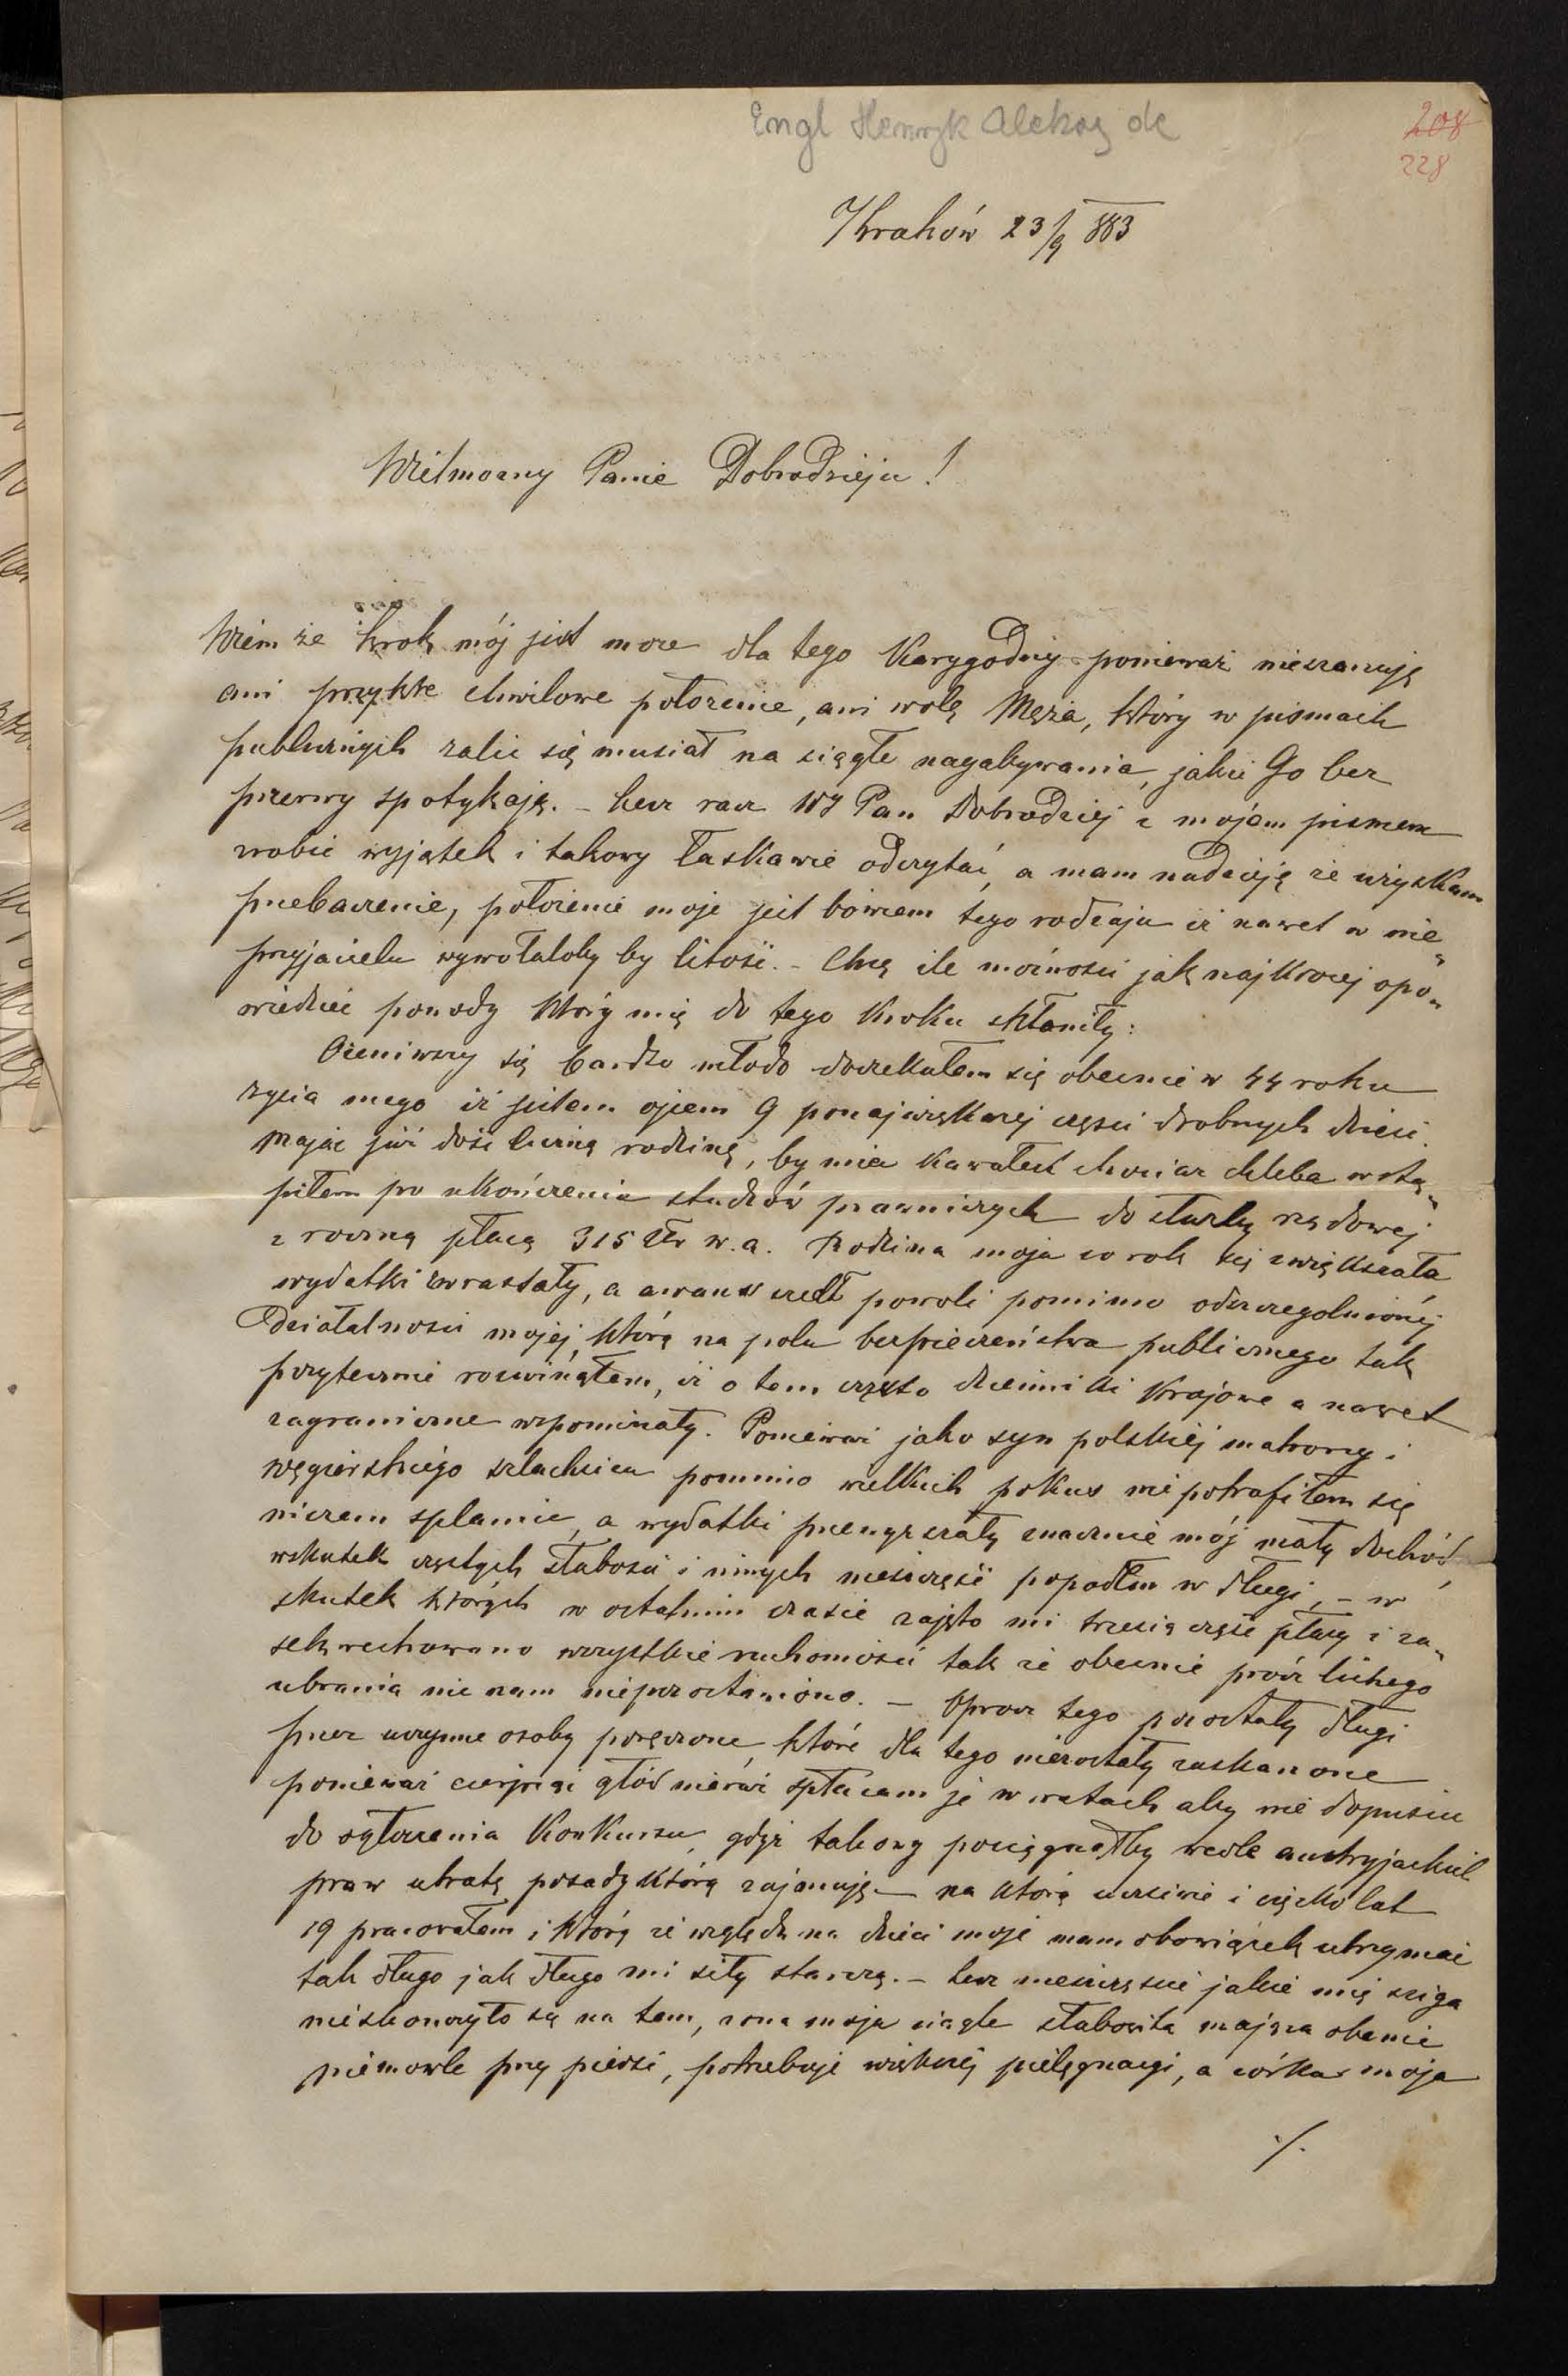 Engl Henryk Aleksg de
208
228
Kraków 23/9 883
Wielmożny Panie Dobrodzieju!
Wiem że krok mój jest może dla tego karygodny ponieważ nieszanuję
ani przykre chwilowe położenie, ani wolę Męża, który w pismach
publicznych żalić się musiał na ciągłe nagabywania, jakie Go bez
przerwy spotykają. – Lecz racz WJ Pan Dobrodziej z mojem pismem
zrobić wyjątek i takowy łaskawie odczytać, a mam nadzieję że uzyskam
przebaczenie, położenie moje jest bowiem tego rodzaju iż nawet w nie„
przyjacielu wywołałoby by litość. – Chcę ile możności jak najkrócej opo„
wiedzieć powody które mię do tego kroku skłoniły:
Ożeniwszy się bardzo młodo doczekałem się obecnie w 44 roku
życia mego iż jestem ojcem 9 ponajwiększej części drobnych dzieci.
Mając już dość liczną rodzinę, by mieć kawałek chociaż chleba wstą„
piłem po ukończeniu studiów prawniczych do służby rządowej
z roczną płacą 315 złr w.a. Rodzina moja co rok się zwiększała
wydatki wzrastały, a awans szedł powoli pomimo odszczególnionéj
działalności mojej, którą na polu bezpieczeństwa publicznego tak
pożytecznie rozwinąłem, iż o tem często dzienniki krajowe a nawet
zagraniczne wspominały. Ponieważ jako syn polskiéj matrony i
węgierskiego szlachcica pomimo wielkich pokus nie potrafiłem się
niczem splamić, a wydatki przewyższały znacznie mój mały dochód
wskutek częstych słabości i innych nieszczęść popadłem w długi, – w
skutek których w ostatnim czasie zajęto mi trzecią część płacy i za„
sekwestrowano wszystkie ruchomości tak że obecnie prócz lichego
ubrania nic nam niepozostawiono. – Oprócz tego pozostały długi
przez uczynne osoby poręczone, które dla tego niezostały zaskarżone
ponieważ cierpiąc głód nieraz spłacam je w ratach aby nie dopuścić
do ogłoszenia konkursu, gdyż takowy pociągnąłby wedle austryjackich
praw utratę posady którą zajmuję – na którą uczciwie i ciężko lat
19 pracowałem i którą ze względu na dzieci moje mam obowiązek utrzymać
tak długo jak długo mi siły starczą. – Lecz nieszczęście jakie mię ściga
nieskończyło się na tem, żona moja ciągle słabowita mająca obecnie
niemowle przy piersi, potrzebuje większej pielęgnacyi, a córka moja
./.